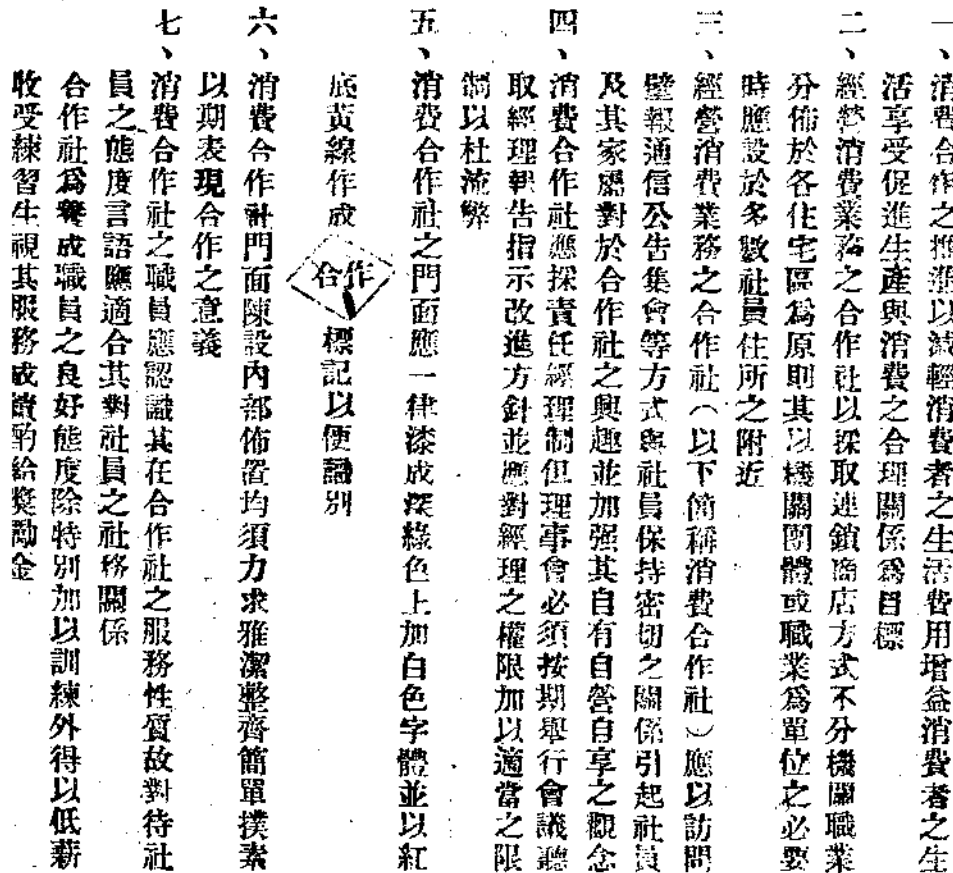 一、消費合作之推進以減輕消費者之生活費用增益消費者之生
活享受促進生產與消費之合理關係爲目標
二、經營消費業務之合作社以採取連鎖商店方式不分機關職業
分佈於各住宅區爲原則其以機關團體或職業爲單位之必要
時應設於多數社員住所之附近
三、經營消費業務之合作社（以下簡稱消費合作社）應以訪問
壁報通信公告集會等方式與社員保持密切之關係引起社員
及其家屬對於合作社之興趣並加强其自有自營自享之觀念
四、消費合作社應採責任經理制但理事會必須按期舉行會議聽
取經理報告指示改進方針並應對經理之權限加以適當之限
制以杜流弊
五、消費合作社之門面應一律漆成深綠色上加白色字體並以紅
底黃線作成 合作 標記以便識別
六、消費合作社門面陳設內部佈置均須力求雅潔整齊簡單撲素
以期表現合作之意義
七、消費合作社之職員應認識其在合作社之服務性質故對待社
員之態度言語應適合其對社員之社務關係
合作社爲養成職員之良好態度除特別加以訓練外得以低薪
收受練習生視其服務成績酌給獎勵金